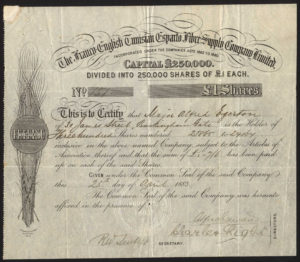 The Franco-English Tunisian Esparto Fibre Supply Company, Limited.
INCORPORATED UNDER THE COMPANIES ACTS 1862 TO 1880.
CAPITAL £250,000.
DIVIDED INTO 250,000 SHARES OF £1 EACH.
No
£1 Shares
This is to Certify that Major Alfred Egerton
of 30 James Street, Buckingham Gate is the Holder of
Three Hundred Shares numbered
inclusive in the above named Company, subject to the Articles of
Association thereof and that the sum of has been paid
up on each of the said Shares.
GIVEN under the Common Seal of the said Company this
25 day of April 1883.
The Common Seal of the said Company was hereunto
affixed in the presence of
DIRECTORS.
SECRETARY.